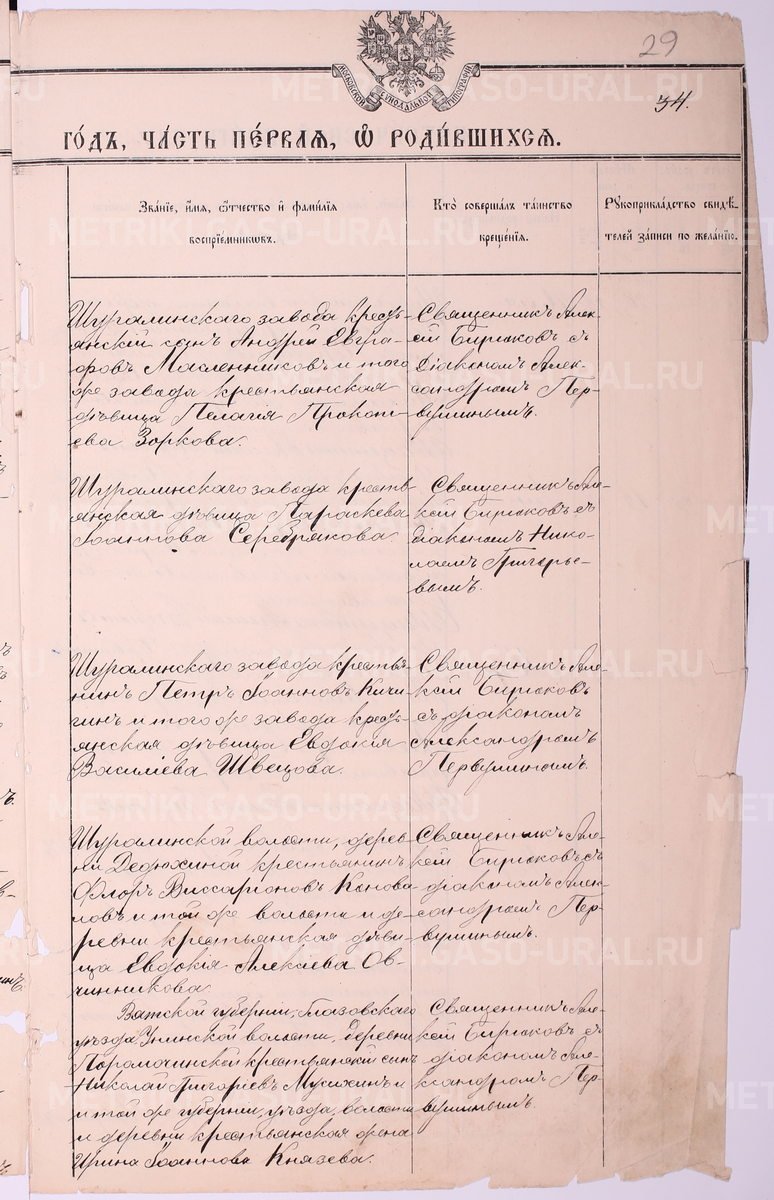 29
34.
МОСКОВСКОЙ СѴНОДАЛЬНОЙ ТИПОГРАФІИ
ГО́ДЪ, ЧА́СТЬ ПЕ́РВАЯ, Ѡ҆ РОДИ́ВШИХСЯ.
Зва́нїе, и҆́мя, ѻ҆́тчество и҆ фами́лїя
воспрїе́мникѡвъ.
Кто̀ соверша́лъ та́инство
креще́нїя.
Рꙋкоприкла́дство свидѣ́-
телей за́писи по жела́нїю.
Шуралинскаго завода кресть-
янскій сынъ Андрей Евгра-
фовъ Масленниковъ и того
же завода крестьянская
дѣвица Пелагія Прокопі-
ева Зоркова.
Священникъ Алек-
сѣй Бирюковъ съ
діакономъ Алек-
сандромъ Пер-
вушинымъ.
Шуралинскаго завода кресть-
янская дѣвица Параскева
Іоаннова Серебрякова
Священникъ Але-
ксѣй Бирюковъ съ
діакономъ Нико-
лаемъ Григорье-
вымъ.
Шуралинскаго завода кресть-
нинъ Петръ Іоанновъ Кичи-
гинъ и того же завода кресть-
янская дѣвица Евдокія
Василіева Швецова.
Священникъ Але-
ксѣй Бирюковъ
съ діакономъ
Александромъ
Первушинымъ.
Шуралинской волости, дерев-
ни Дедюхиной крестьянинъ
Флоръ Виссаріоновъ Конова-
ловъ и той же волости и де-
ревни крестьянская дѣви-
ца Евдокія Алексіева Ов-
чинникова.
Священникъ Але-
ксѣй Бирюковъ съ
діакономъ Алек-
сандромъ Пер-
вушинымъ.
Вятской губерніи, Глазовскаго
уѣзда Унинской волости, деревни
крестьянскій сынъ
Николай Григоріевъ и
и той же губерніи, уѣзда, волости
и деревни крестьянская жена
Ирина Іоаннова Князева.
Священникъ Але-
ксѣй Бирюковъ съ
діакономъ Але-
ксандромъ Пер-
вушинымъ.
METRIKI.GASO-URAL.RU